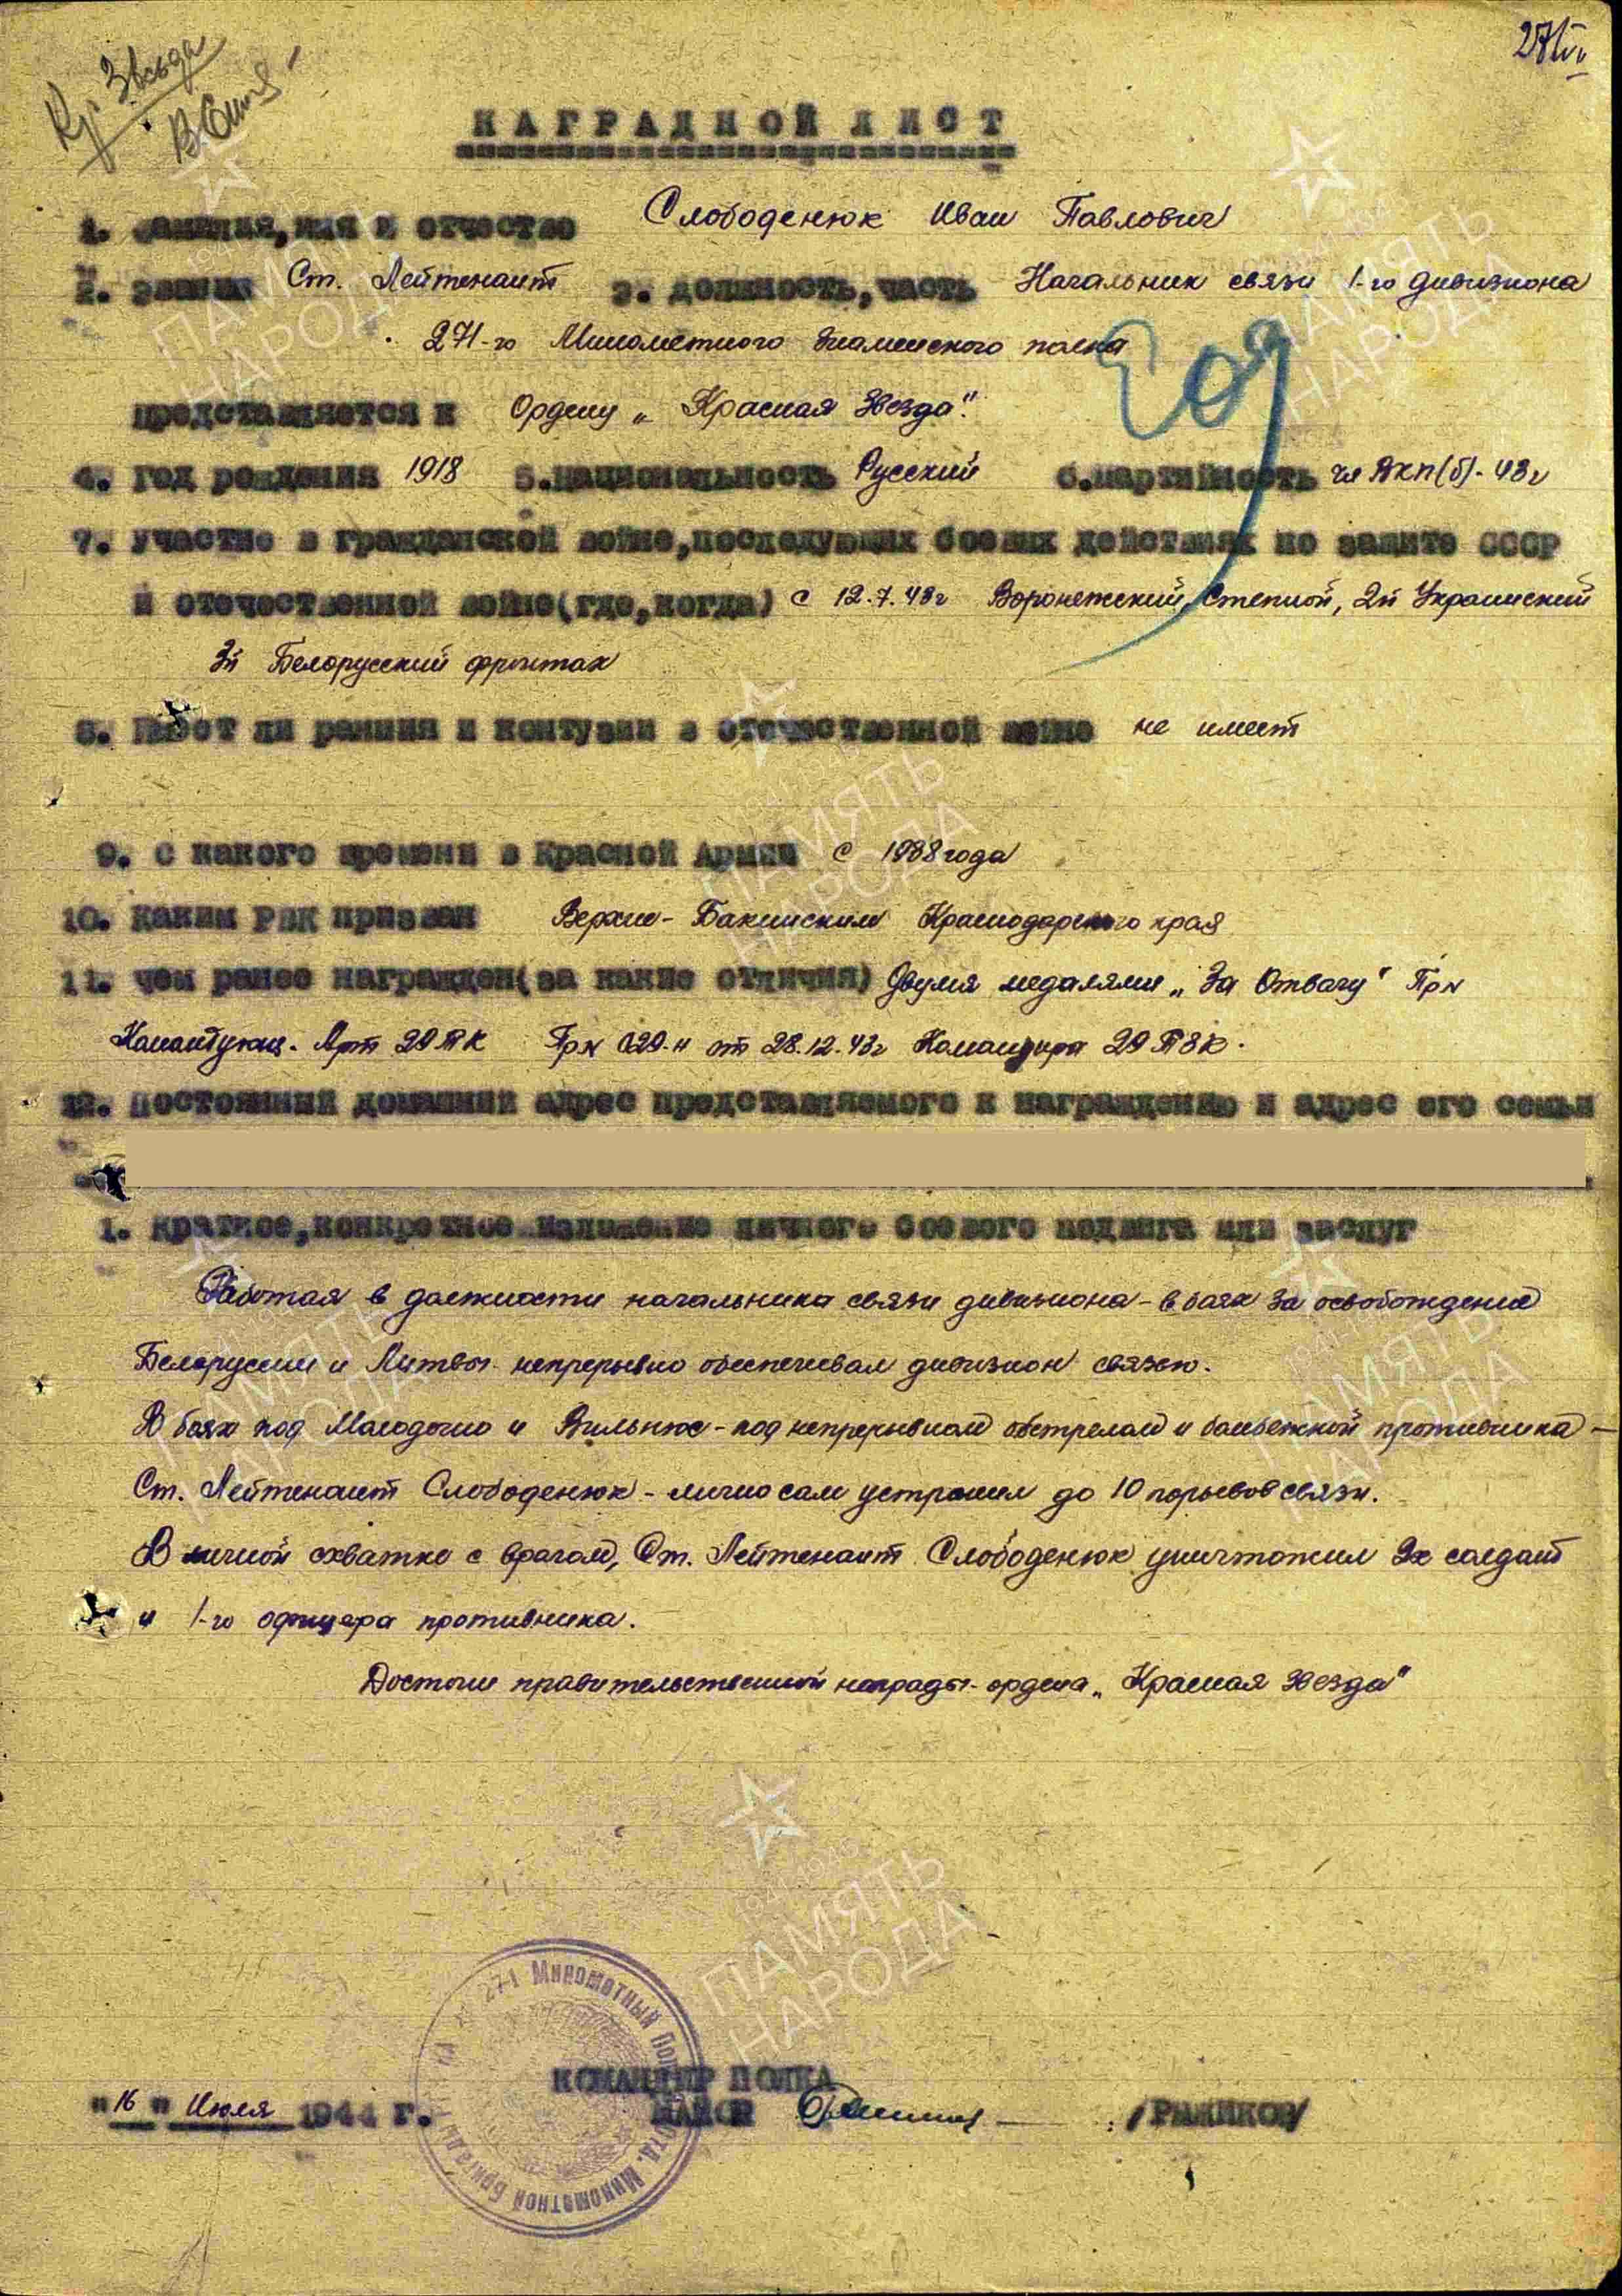 Кр. Звезда
НАГРАДНОЙ ЛИСТ
1. Фамилия, имя и отчество Слободенюк Иван Павлович
2. звание Ст. Лейтенант 3. должность, часть Начальник связи 1-го дивизиона
271-го Минометного Знаменского полка
представляется к Ордену „Красная Звезда".
4. год рождения 1918 5. национальность Русский 6. партийность чл ВКП(б) - 43г
7. участие в гражданской войне, последующих боевых действиях по защите СССР
и отечественной войне (где, когда) с 12.7.43г Воронежский, Степной, 2й Украинский
3й Белорусский фронтах
8. Имеет ли ранния и контузии в отечественной войне не имеет
9. с какого времени в Красной Армии с 1938 года
10. каким РВК призван Верхне-Баканским Краснодарского края
11. чем ранее награжден (за какие отличия) Двумя медалями „За Отвагу" Пр№
Командующ. Арт 29ТК Пр№ 029-н от 28.12.43г Командира 29 ТЗК.
12. постоянный домашний адрес представляемого к награждению и адрес его семьи
1. краткое, конкретное изложение личного боевого подвига или заслуг
Работая в должности начальника связи дивизиона - в боях за освобождение
Белоруссии и Литвы непрерывно обеспечивал дивизион связью.
В боях под Молодечно и Вильнюс - под непрерывном обстрелом и бомбежкой противника -
Ст. Лейтенант Слободенюк - лично сам устранил до 10 порывов связи.
В личной схватке с врагом, Ст. Лейтенант Слободенюк уничтожил 2х солдат
и 1-го офицера противника.
Достоин правительственной награды - ордена „Красная Звезда"
271 Минометный Полк
Минометной Бригады
КОМАНДИР ПОЛКА
"16" Июля 1944 г. МАЙОР /РЫЖИКОВ/
1941-1945
ПАМЯТЬ
НАРОДА